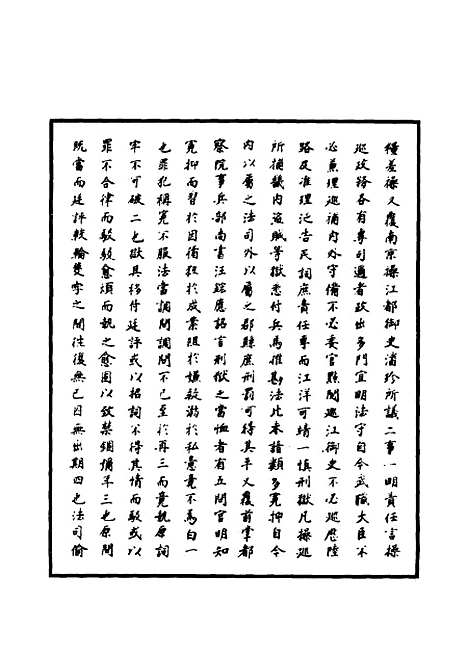 穜差操又覆南京操江都御史潘珍所議二事一明責任言操
巡政路各有專司邇者政出多門宜明法守自今武職大臣不
必兼理巡捕內外守備不必委官點閱巡江御史不必巡歷陸
路及准理泛告民詞庶責任專而江洋可靖一慎刑獄凡操巡
所捕畿內盜賊等獄悉付兵馬推勘法比未諳類多冤抑自今
內以屬之法司外以屬之郡縣庶刑罰可得其平又覆前掌都
察院事兵部尚書汪鋐應詔言刑獄之當恤者有五問官明知
冤抑而習於因循狃於成案阻於嫌疑溺於私意竟不為白一
也罪犯稱冤不服法當調問調問不已至於再三而竟執原詞
牢不可破二也獄具移付廷評或以招詞不得其情而駁或以
罪不合律而駁駁愈煩而執之愈固以致禁錮彌年三也原問
既當而廷評軼輪煲字之間往復無已因無出期四也法司偷